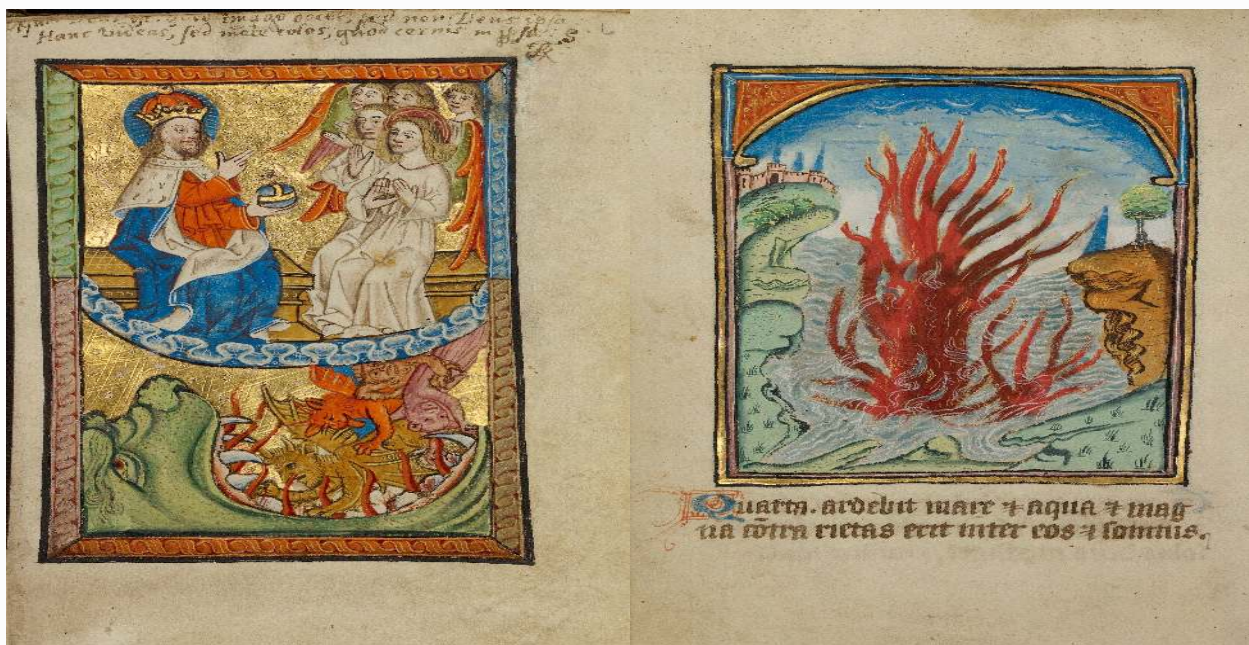 imago docet, sed non Deus ipsa
Hanc videas, sed mente colas, quod cernis in
Quarta. ardebit mare ⁊ aqua ⁊ mag
na cōtra rietas erit inter eos ⁊ sonitus.